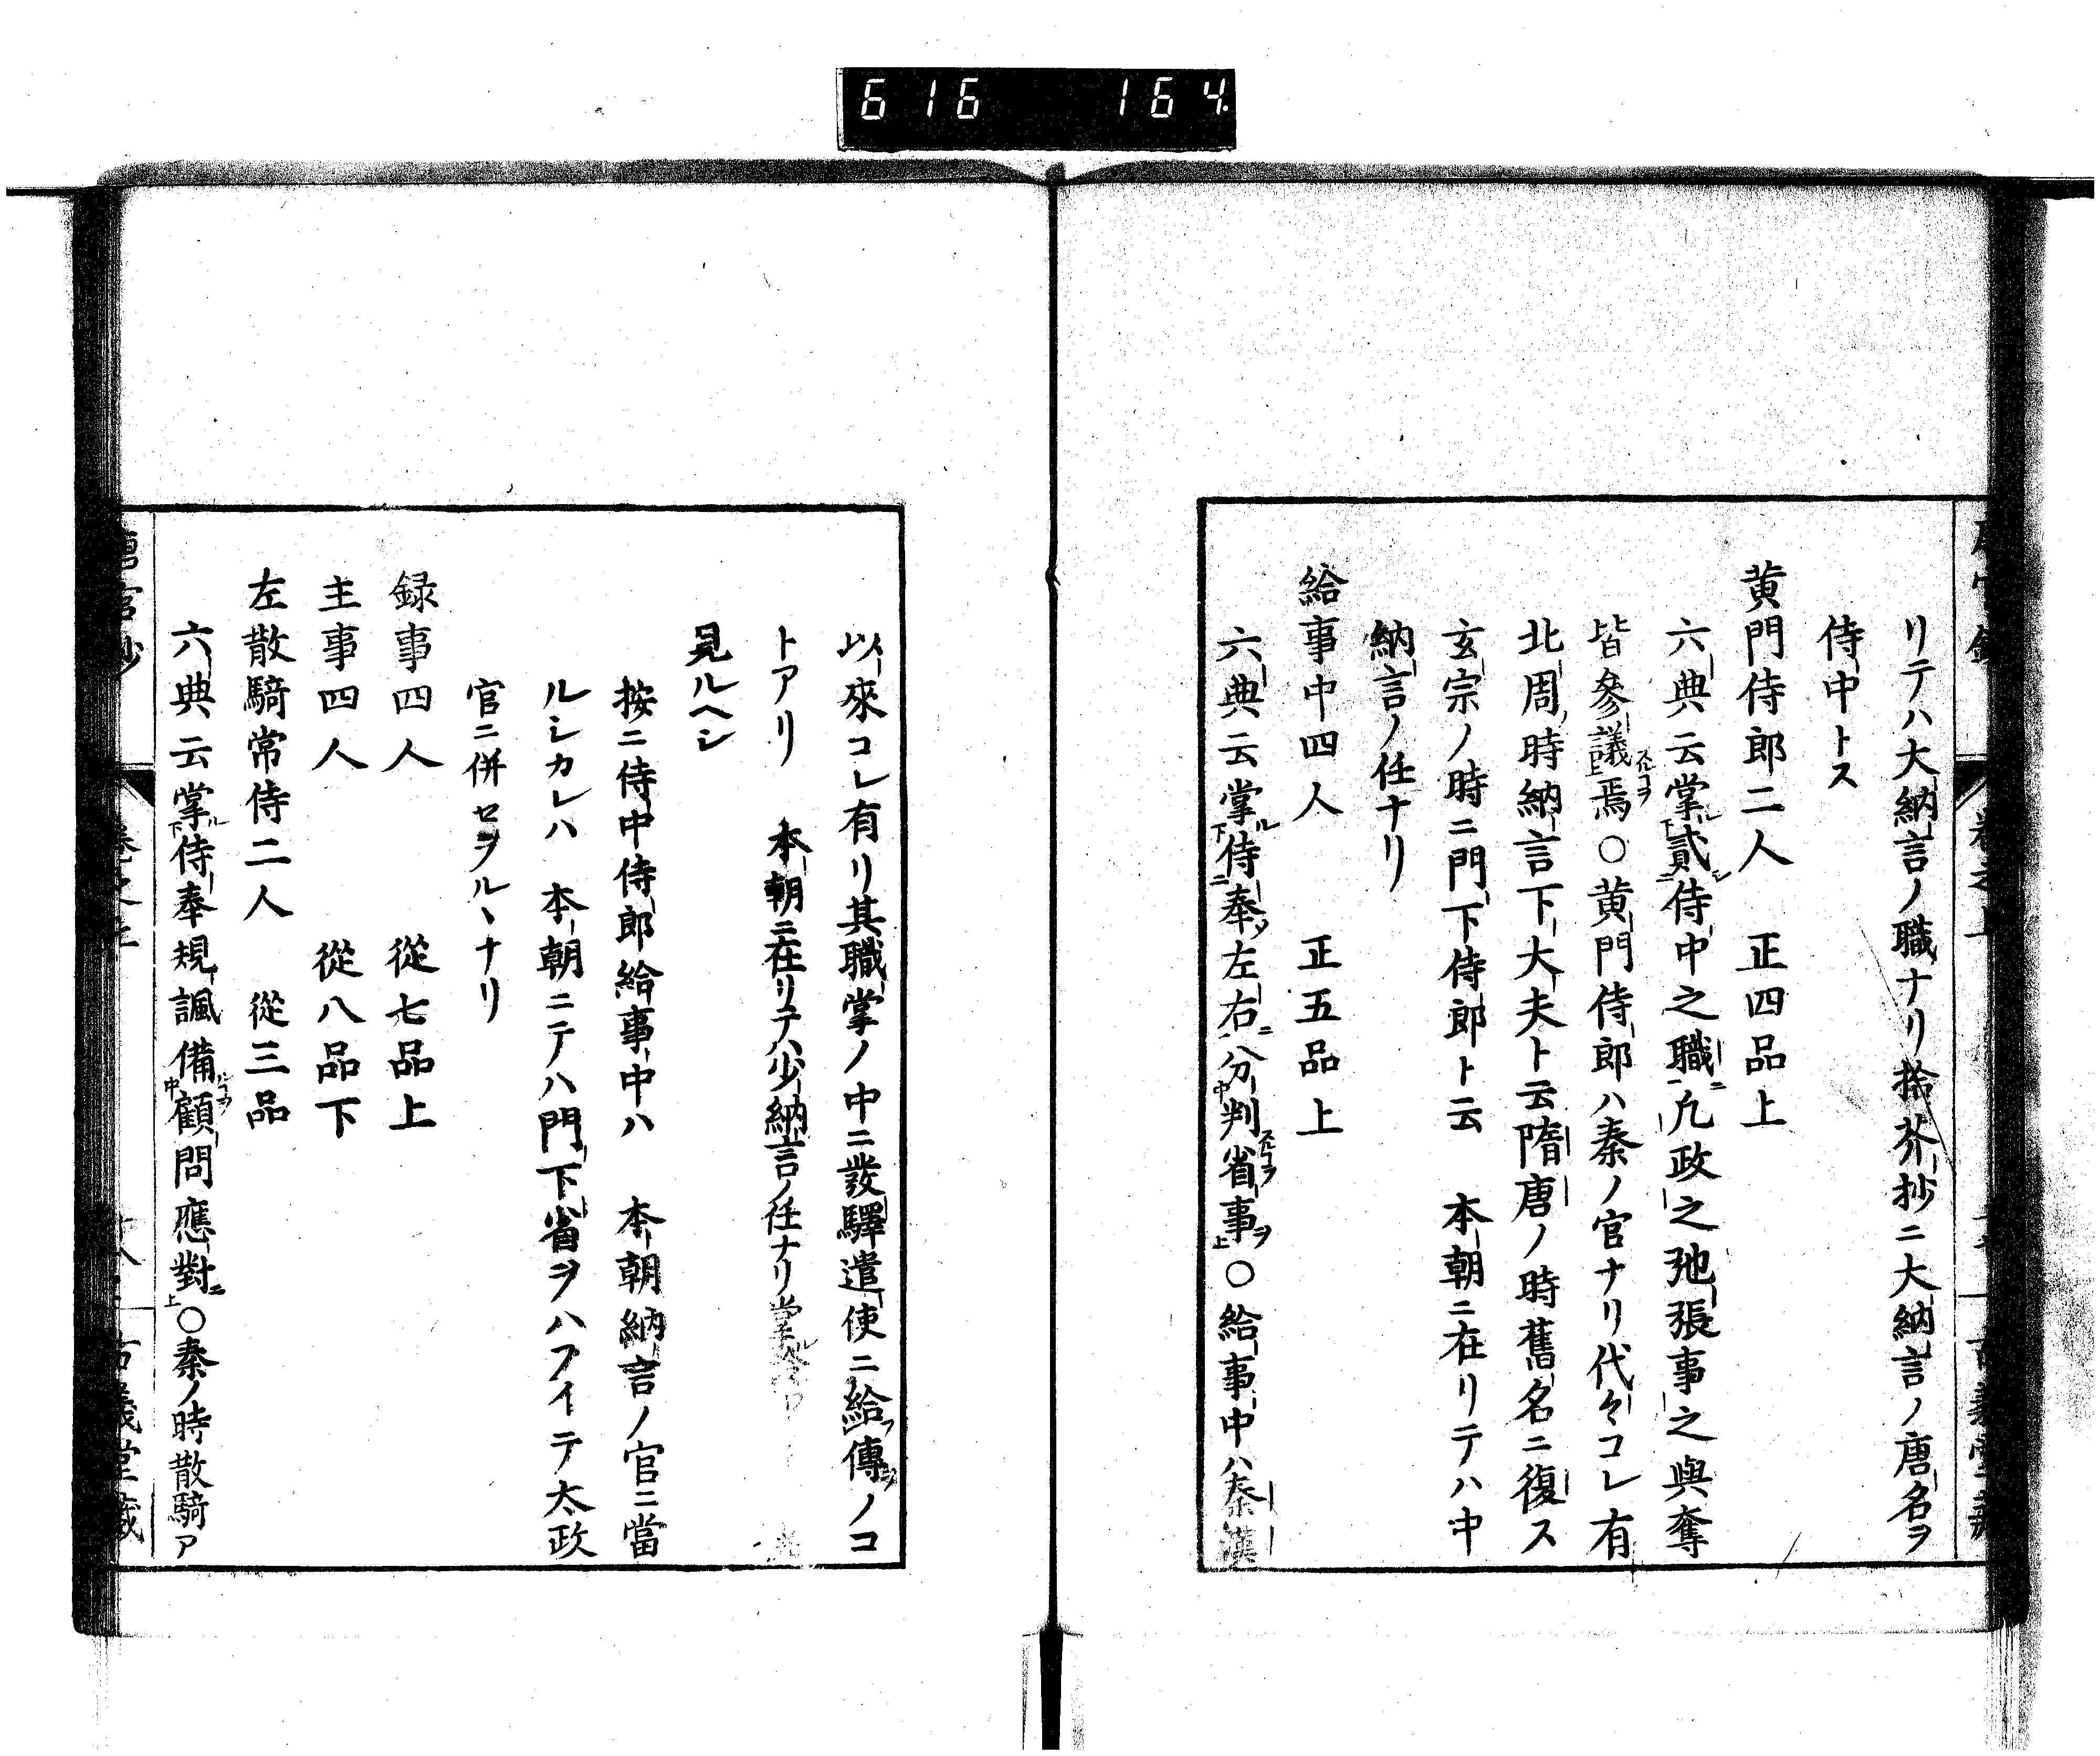 616 164
リテハ大納言ノ職ナリ拾芥抄ニ大納言ノ唐名ヲ
侍中トス
黄門侍郎二人 正四品上
六典云掌貳侍中之職凢政之弛張事之與奪
皆參議焉○黄門侍郎ハ秦ノ官ナリ代々コレ有
北周ノ時納言下大夫ト云隋唐ノ時舊名ニ復ス
玄宗ノ時ニ門下侍郎ト云 本朝ニ在リテハ中
納言ノ任ナリ
給事中四人 正五品上
六典云掌侍奉左右分判省事○給事中ハ秦漢
以來コレ有リ其職掌ノ中ニ發驛遣使ニ給傳ノコ
トアリ 本朝ニ在リテハ少納言ノ任ナリ
見ルヘシ
按ニ侍中侍郎給事中ハ 本朝納言ノ官ニ當
ルシカレハ 本朝ニテハ門下省ヲハブイテ太政
官ニ併セヲルヽナリ
録事四人 從七品上
主事四人 從八品下
左散騎常侍二人 從三品
六典云掌侍奉規諷備顧問應對○秦ノ時散騎ア
唐官鈔 卷之上 古義堂藏